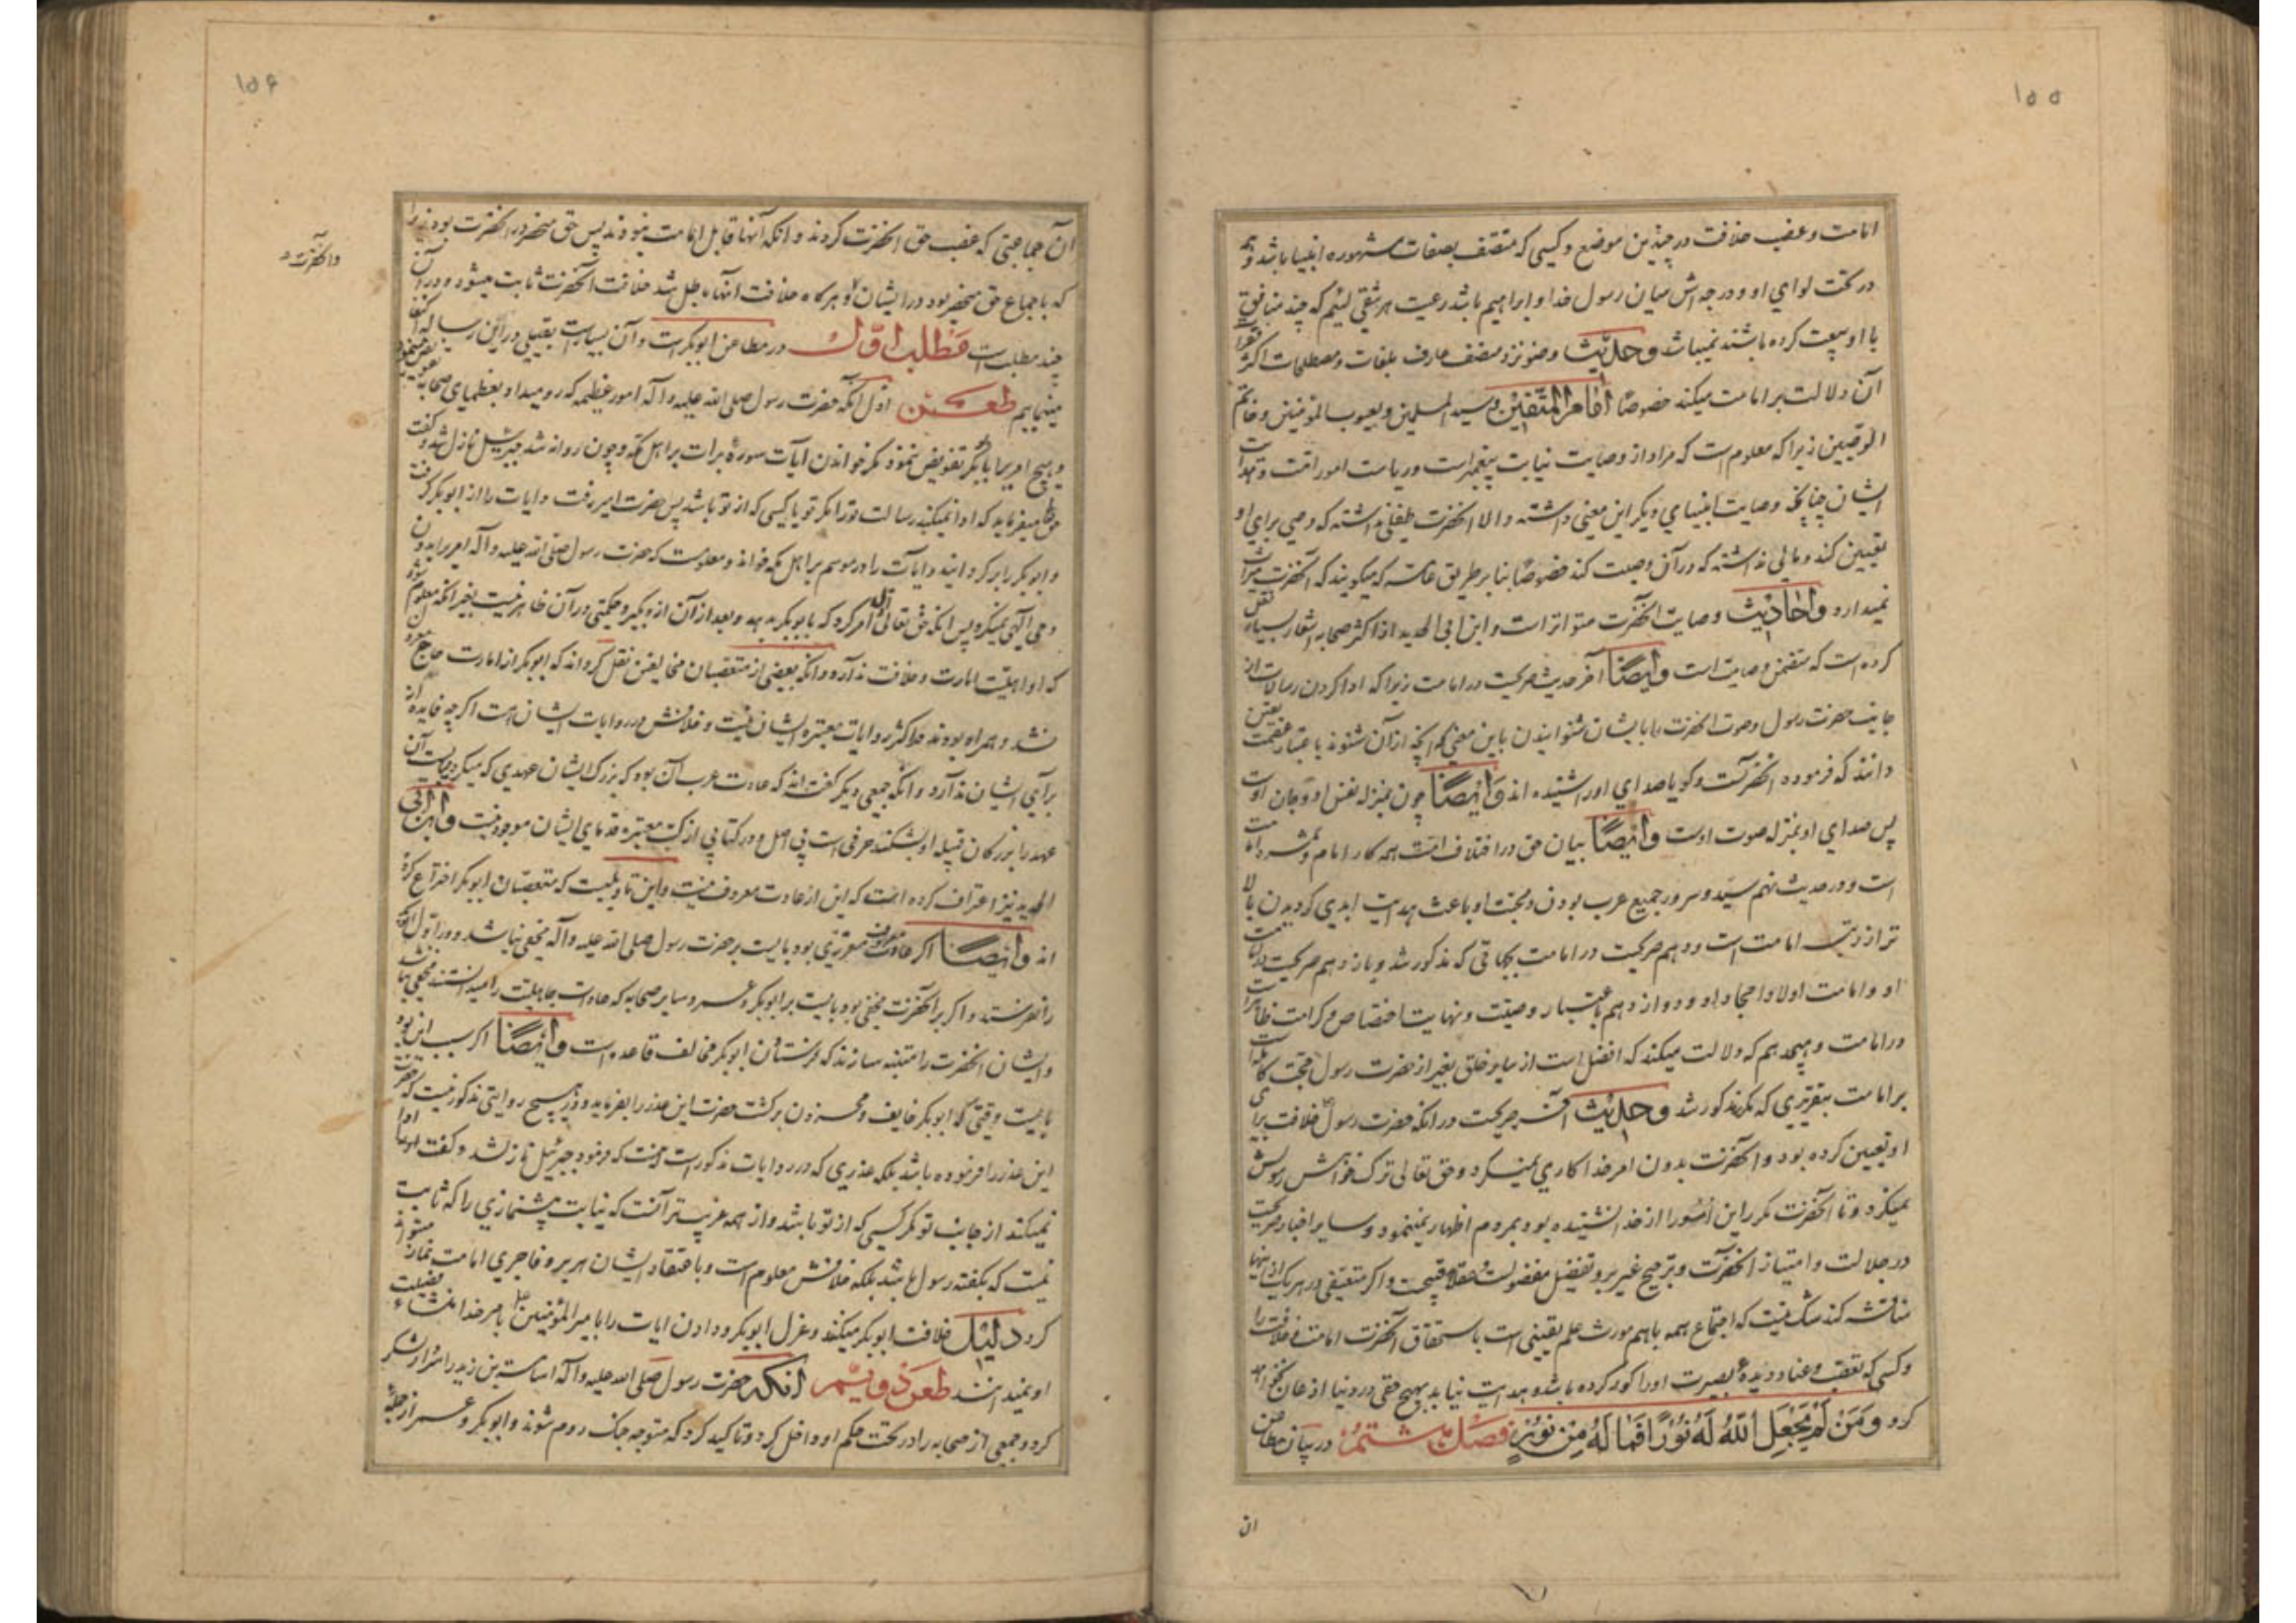 ۱۵۵
امامت و غصب خلافت در چندین موضع و کسی که متصف بصفات مشهوره انبیا باشد و همه
در تحت لوای او و درجه‌اش میان رسول خدا و ابراهیم باشد رعیت هر شقی لئیم که چند منافق
با او بیعت کرده باشند نمیباشد و حدیث وضو نزد منصف عارف بلغات و مصطلحات اکثر فقرات
آن دلالت بر امامت میکند خصوصا امام المتقین و سید المسلمین و یعسوب المؤمنین و خاتم
الوصیین زیرا که معلوم است که مراد از وصایت نیابت پیغمبر است و ریاست امور امت و هدایت
ایشان چنانچه وصایت انبیای دیگر این معنی داشته و الا انحضرت طفلی نداشته که وصی برای او
تعیین کند و مالی نداشته که در آن وصیت کند خصوصا بنا بر طریق عامه که میگویند که آنحضرت میراث
نمیدارد و احادیث وصایت آنحضرت متواتر است و ابن ابی الحدید از اکثر صحابه اشعار بسیار نقل
کرده است که متضمن وصایت است و ایضا آخر حدیث صریحست در امامت زیرا که ادا کردن رسالات از
جانب حضرت رسول و صوت انحضرت را بایشان شنوانیدن باین معنی که آنچه از آن شنوند باعتبار عصمت یقین
دانند که فرموده انحضرتست و گویا صدای او را شنیده اند و ایضا چون بمنزله نفس او و جان اوست
پس صدای او بمنزله صوت اوست و ایضا بیان حق در اختلاف امت همه کار امام و ثمره امامت
است و در حدیث نهم سید و سرور جمیع عرب بودن و محبت او باعث هدایت ابدی گردیدن بالا
تر از رتبه امامت است و دهم صریحست در امامت بجهاتی که مذکور شد و یازدهم صریحست در امامت
او و امامت اولاد امجاد او و دوازدهم باعتبار وصیت و نهایت اختصاص و کرامت ظاهر است
در امامت و هیجدهم که دلالت میکند که افضل است از سایر خلق بغیر از حضرت رسول حجت کامله است
بر امامت بتقریری که مکرر مذکور شد و حدیث آخر صریحست در انکه حضرت رسول خلافت برای
او تعیین کرده بود و آنحضرت بدون امر خدا کاری نمیکرد و حق تعالی ترک خواهش رسولش
نمیکرد و تا آنحضرت مکرر این امور را از خدا نشنیده بود بمردم اظهار نمینمود و سایر اخبار صریحست
در جلالت و امتیاز انحضرت و ترجیح غیر بر او تفضیل مفضولست و عقلا قبیحست و اگر متعسفی در هر یک از اینها
مناقشه کند شک نیست که اجتماع همه باهم مورث علم یقینی است باستحقاق آنحضرت امامت و خلافت را
و کسی که تعصب و عناد دیده بصیرت او را کور کرده باشد و هدایت نیابد بهیچ حقی در دنیا اذعان نخواهد
کرد و مَن لَم یَجعَلِ اللهُ لَهُ نُورًا فَمَا لَهُ مِن نُورٍ فصل هشتم در بیان مطاعن
ان
۱۵۶
آن جماعتی که غصب حق انحضرت کردند و انکه آنها قابل امامت نبودند پس حق منحصر در انحضرت بود زیرا
که باجماع حق منحصر بود در ایشان و هرگاه خلافت آنها باطل شد خلافت آنحضرت ثابت میشود و در آن
چند مطلب است مطلب اول در مطاعن ابوبکر است و آن بسیار است بقلیلی در این رساله اکتفا
مینماییم طعن اول آنکه حضرت رسول صلی الله علیه و آله امور عظیمه که رو میداد بعظمای صحابه تفویض مینمود
و هیچ امریرا بابوبکر تفویض ننمود مگر خواندن آیات سوره برات بر اهل مکه و چون روانه شد جبرئیل نازل شد و گفت
حق تعالی میفرماید که ادا نمیکند رسالت تو را مگر تو یا کسی که از تو باشد پس حضرت امیر رفت و ایات را از ابوبکر گرفت
و ابوبکر را برگردانید و ایات را در موسم بر اهل مکه خواند و معلومست که حضرت رسول صلی الله علیه و آله امریرا بدون
وحی الهی نمیکرد پس انکه حق تعالی اول امر کرد که بابوبکر بدهد و بعد از آن از او بگیرد حکمتی در آن ظاهر نیست بغیر انکه معلوم شود
که او اهلیت امارت و خلافت ندارد و انکه بعضی از متعصبان مخالفین نقل کرده‌اند که ابوبکر از امارت حاج معزول
نشد و همراه بودند در اکثر روایات معتبره ایشان نیست و خلافش در روایات ایشان هست اگرچه فایده
برای ایشان ندارد و انکه جمعی دیگر گفته‌اند که عادت عرب آن بود که بزرگ ایشان عهدی که میکرد میبایست آن
عهد را بزرگان قبیله او بشکنند حرفی است بی اصل و در کتابی از کتب معتبره قدمای ایشان موجود نیست و ابن ابی
الحدید نیز اعتراف کرده است که این از عادت معروف نیست و این تاویلیست که متعصبان ابوبکر اختراع کرده
اند و ایضا اگر عادت معروف مقرری بود بایست بر حضرت رسول صلی الله علیه و آله مخفی نباشد و در اول ابوبکر
را نفرستد و اگر بر آنحضرت مخفی بود بایست بر ابوبکر و عمر و سایر صحابه که عادات جاهلیت را میدانستند مخفی نباشد
و ایشان انحضرت را متنبه سازند که فرستادن ابوبکر مخالف قاعده است و ایضا اگر سبب این بود
بایست وقتی که ابوبکر خایف و محزون برگشت حضرت این عذر را بفرماید و در هیچ روایتی مذکور نیست که حضرت
این عذر را فرموده باشد بلکه عذری که در روایات مذکور است اینست که فرمود جبرئیل نازل شد و گفت ادا
نمیکند از جانب تو مگر کسی که از تو باشد و از همه غریب‌تر آنست که نیابت پیشنمازی را که ثابت
نیست که بگفته رسول باشد بلکه خلافش معلوم است و باعتقاد ایشان هر بر و فاجری امامت نماز میتواند
کرد دلیل خلافت ابوبکر میکنند و عزل ابوبکر و دادن ایات را بامیر المؤمنین بامر خدا منشاء فضیلت
او نمیدانند طعن دویم انکه حضرت رسول صلی الله علیه و آله اسامة بن زید را سردار لشکر
کرد و جمعی از صحابه را در تحت حکم او داخل کرد و تاکید کرد که متوجه جنگ روم شوند و ابوبکر و عمر از جمله